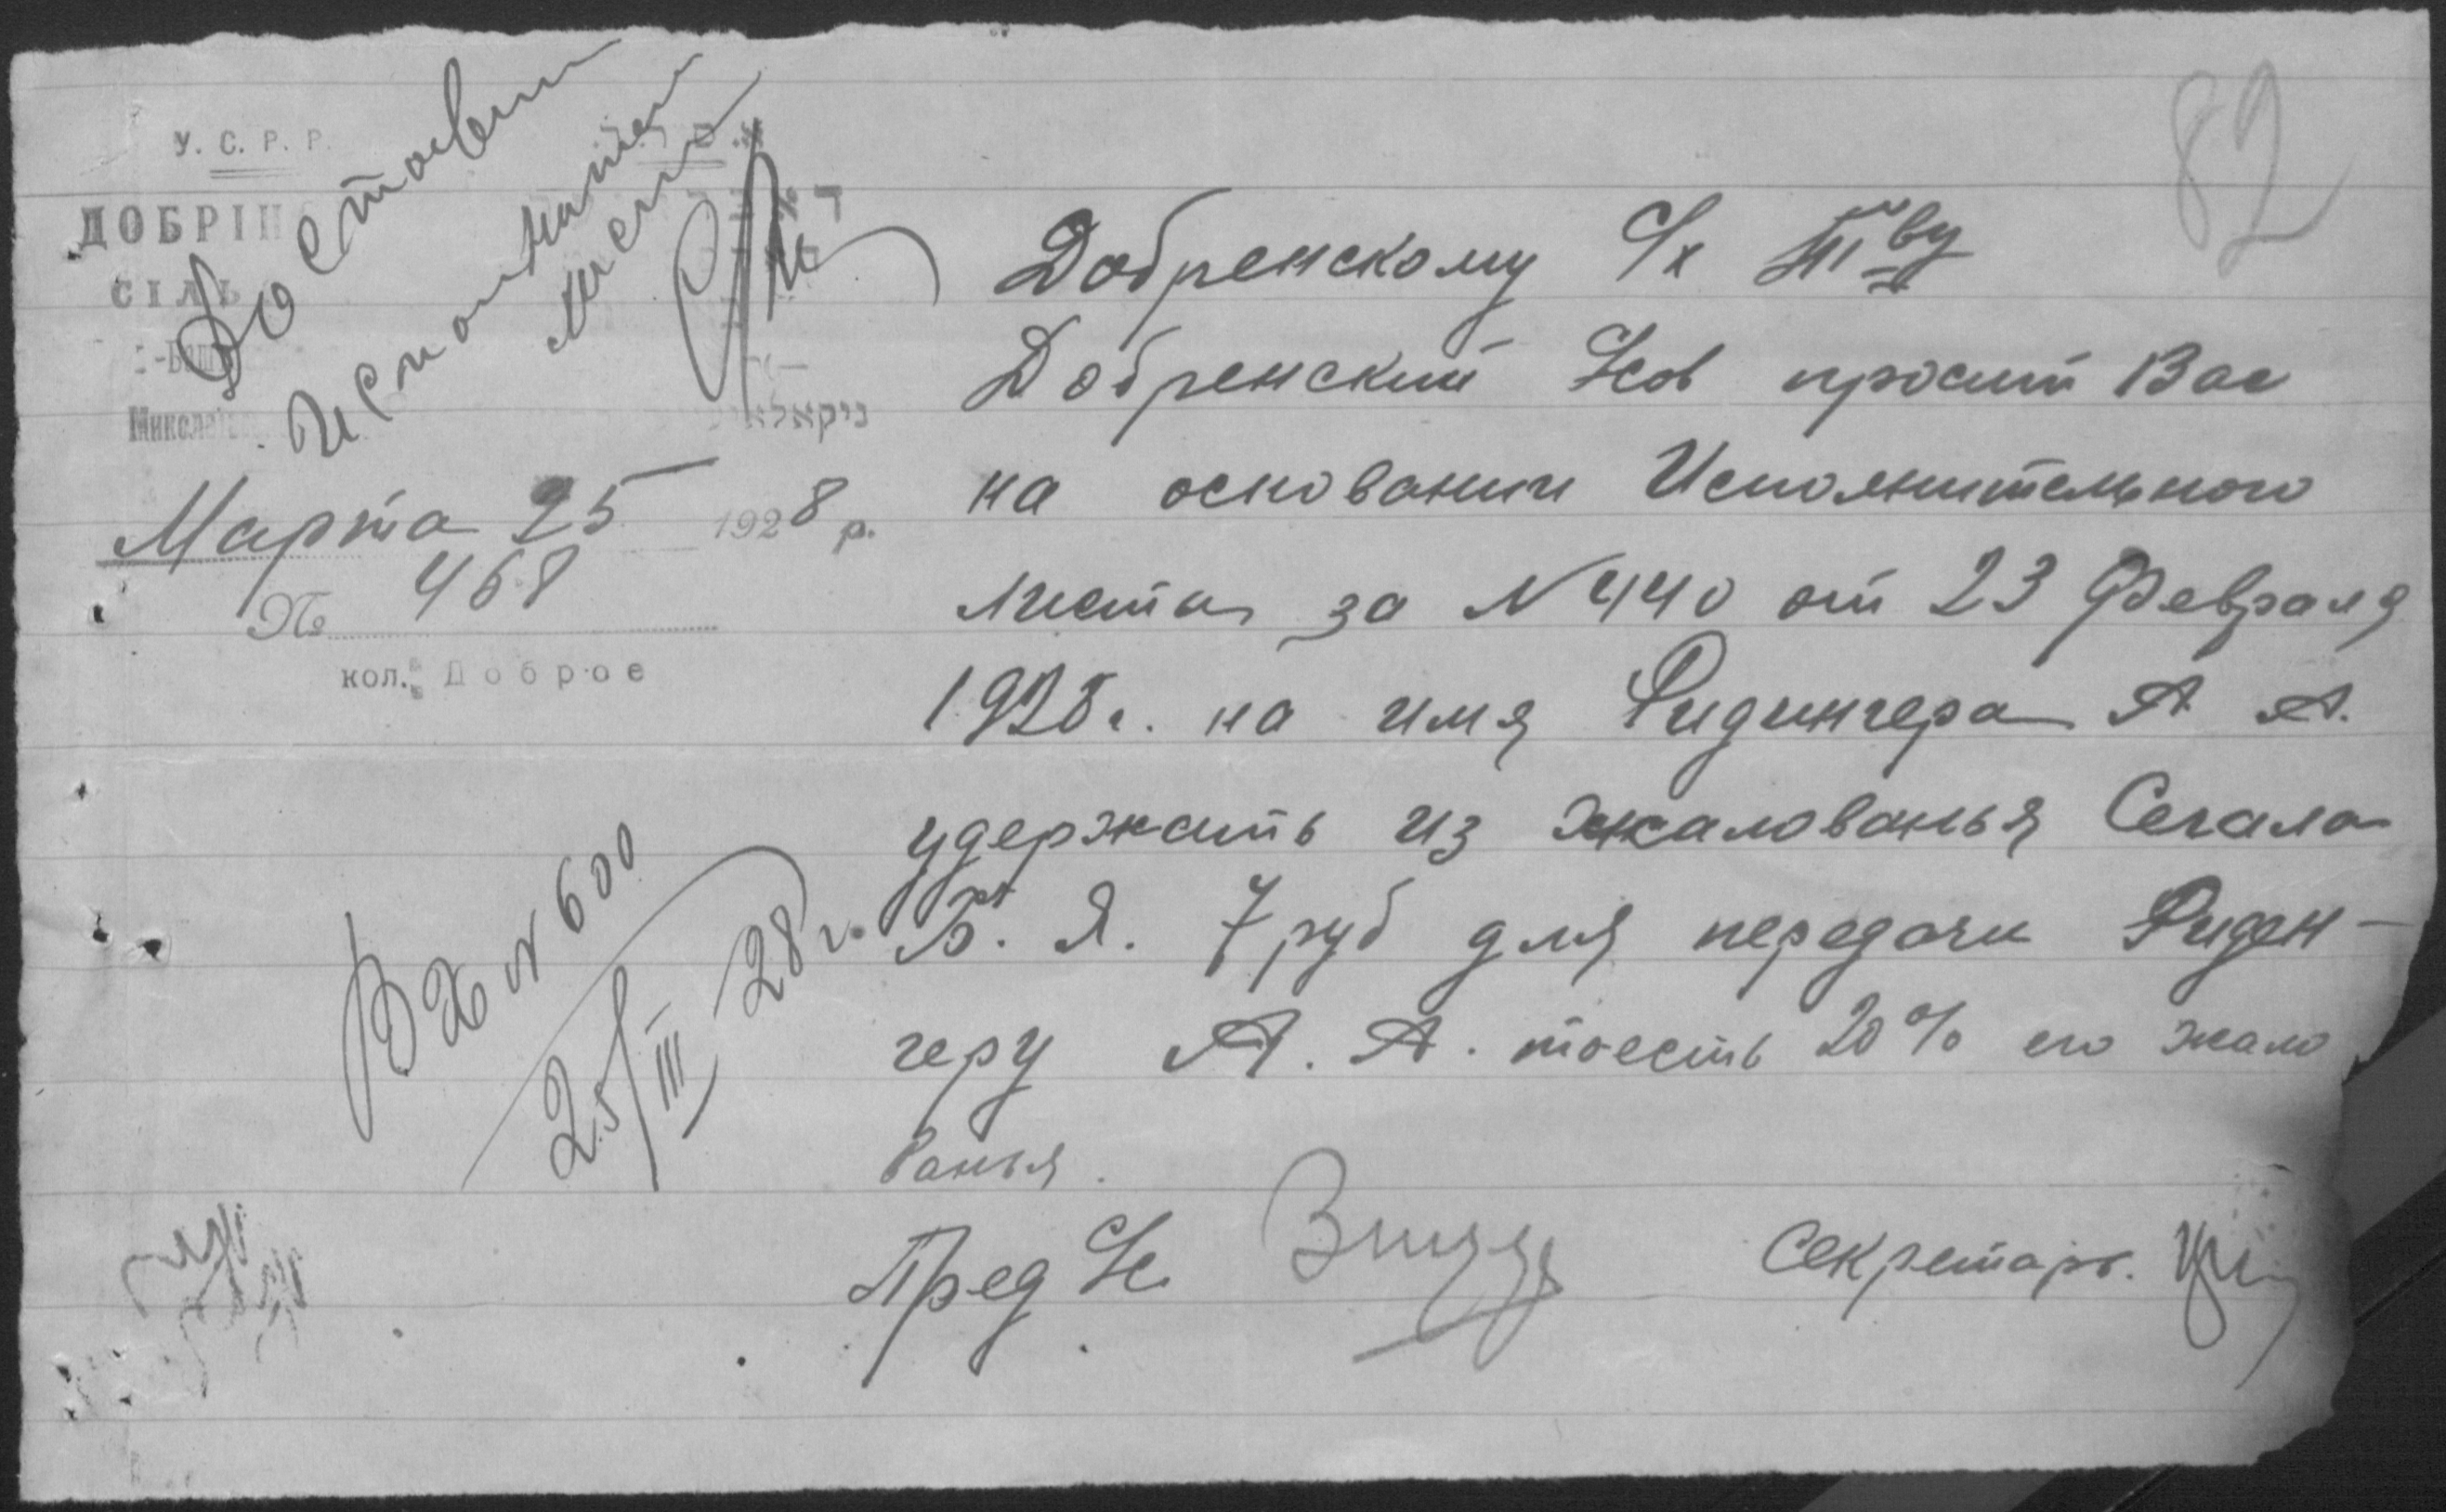 82
У. С. Р. Р.
ДОБРІН
СІЛЬ
Микола
ניקאלא
Доставить
исполнительн
лист
Марта 25 1928 р.
№ 468
кол. Доброе
Вх N 600
25/III 28 г.
Добренскому С/х Т-ву
Добренский С/сов просит Вас
на основании Исполнительного
листа за N 440 от 23 Февраля
1928 г. на имя Ридингера А. А.
удержать из жалованья Сегала
Б. Я. 7 руб для передачи Риден-
геру А. А. тоесть 20% его жало
ванья.
Пред С/с Секретарь.